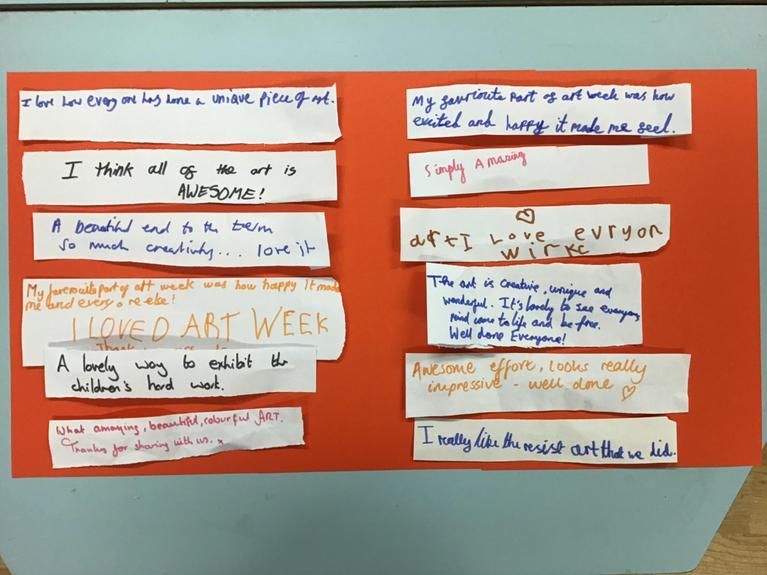 I love how every one has done a unique piece of art.
I think all of the art is
AWESOME!
A beautiful end to the term
so much creativity... love it
My favrouite part of art week was how happy it made
me and every one else!
I LOVED ART WEEK
A lovely way to exhibit the
children's hard work.
What amazing, beautiful, colourful ART.
Thanks for sharing with us. x
My favrouite part of art week was how
excited and happy it made me feel.
Simply Amazing
art I Love evryon
wirke
The art is creative, unique and
wonderful. It's lovely to see everyones
mind come to life and be free.
Well done Everyone!
Awesome effort, looks really
impressive - well done ♡
I really like the resist art that we did.